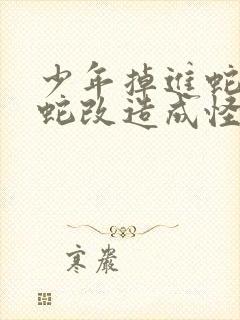 少年掉进蛇
蛇改造成怪
寒岩